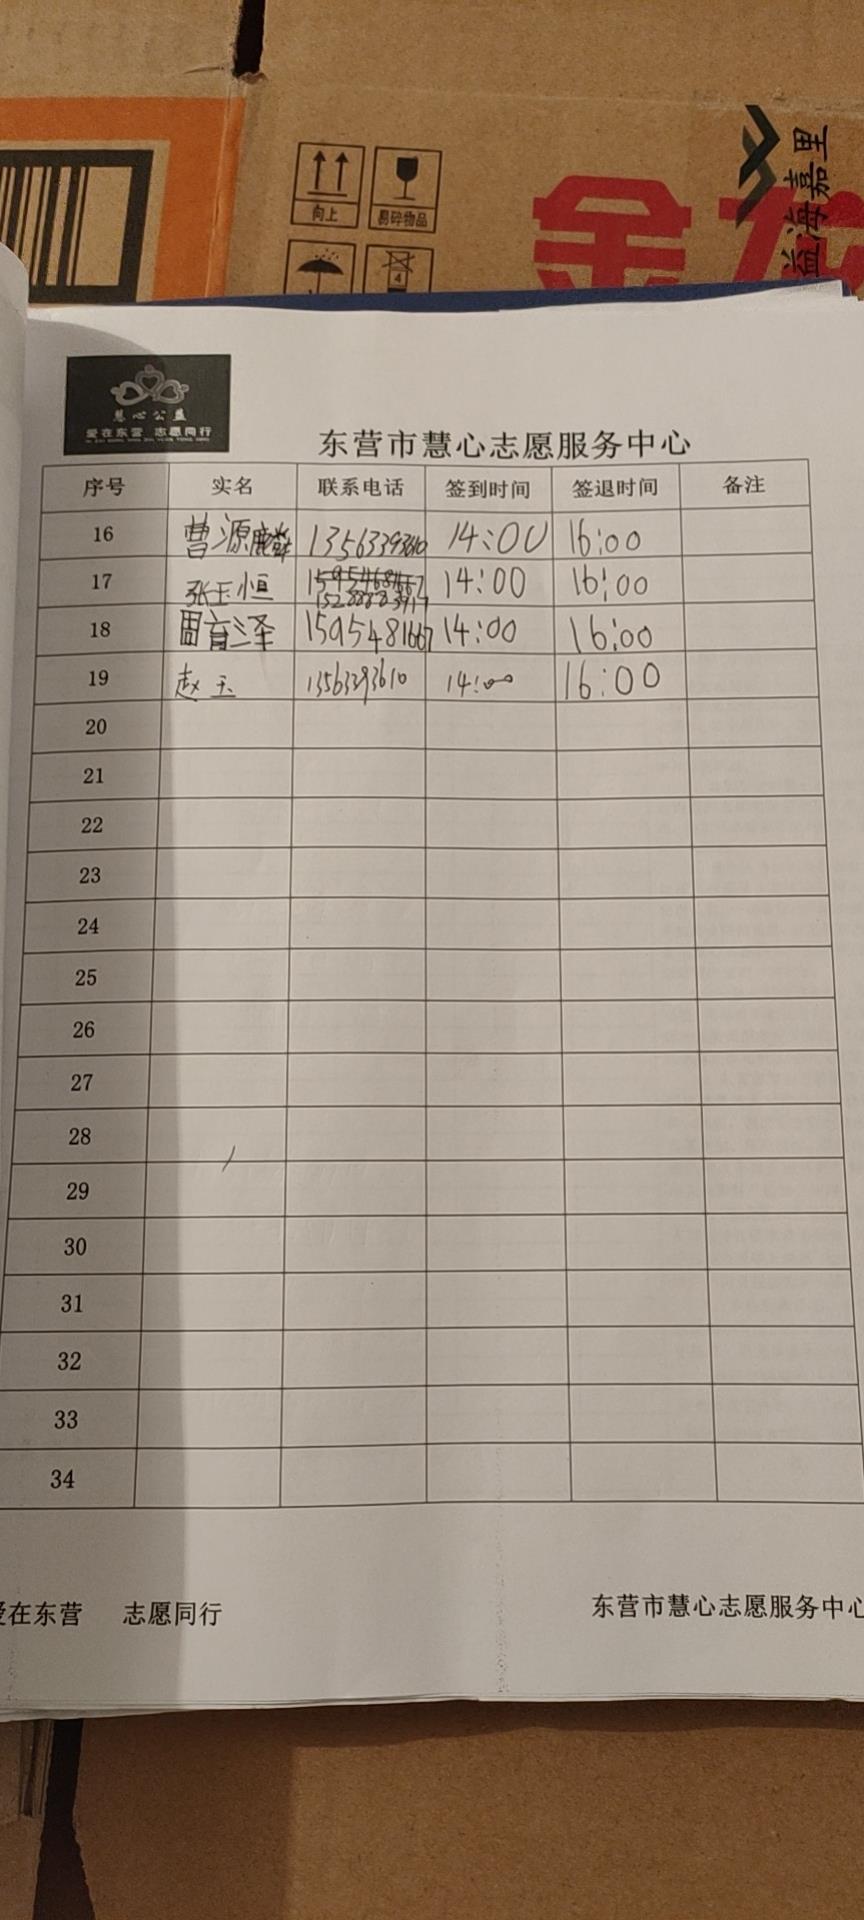 向上
易碎物品
4
金龙
益海嘉里
慧心公益
爱在东营 志愿同行
东营市慧心志愿服务中心
序号 实名 联系电话 签到时间 签退时间 备注
16 曹源麟 13563393610 14:00 16:00
17 张玉恒 14:00 16:00
18 周育泽 1595481667 14:00 16:00
19 赵玉 13563293610 14:00 16:00
20
21
22
23
24
25
26
27
28
29
30
31
32
33
34
爱在东营 志愿同行
东营市慧心志愿服务中心